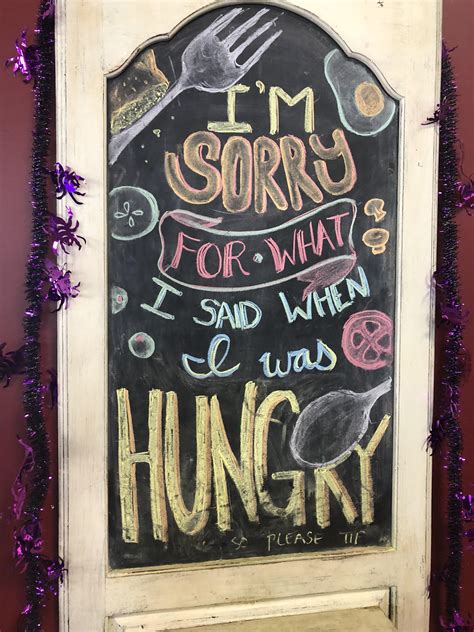 I'M
SORRY
FOR • WHAT
I SAID WHEN
I was
HUNGRY
so PLEASE TIP